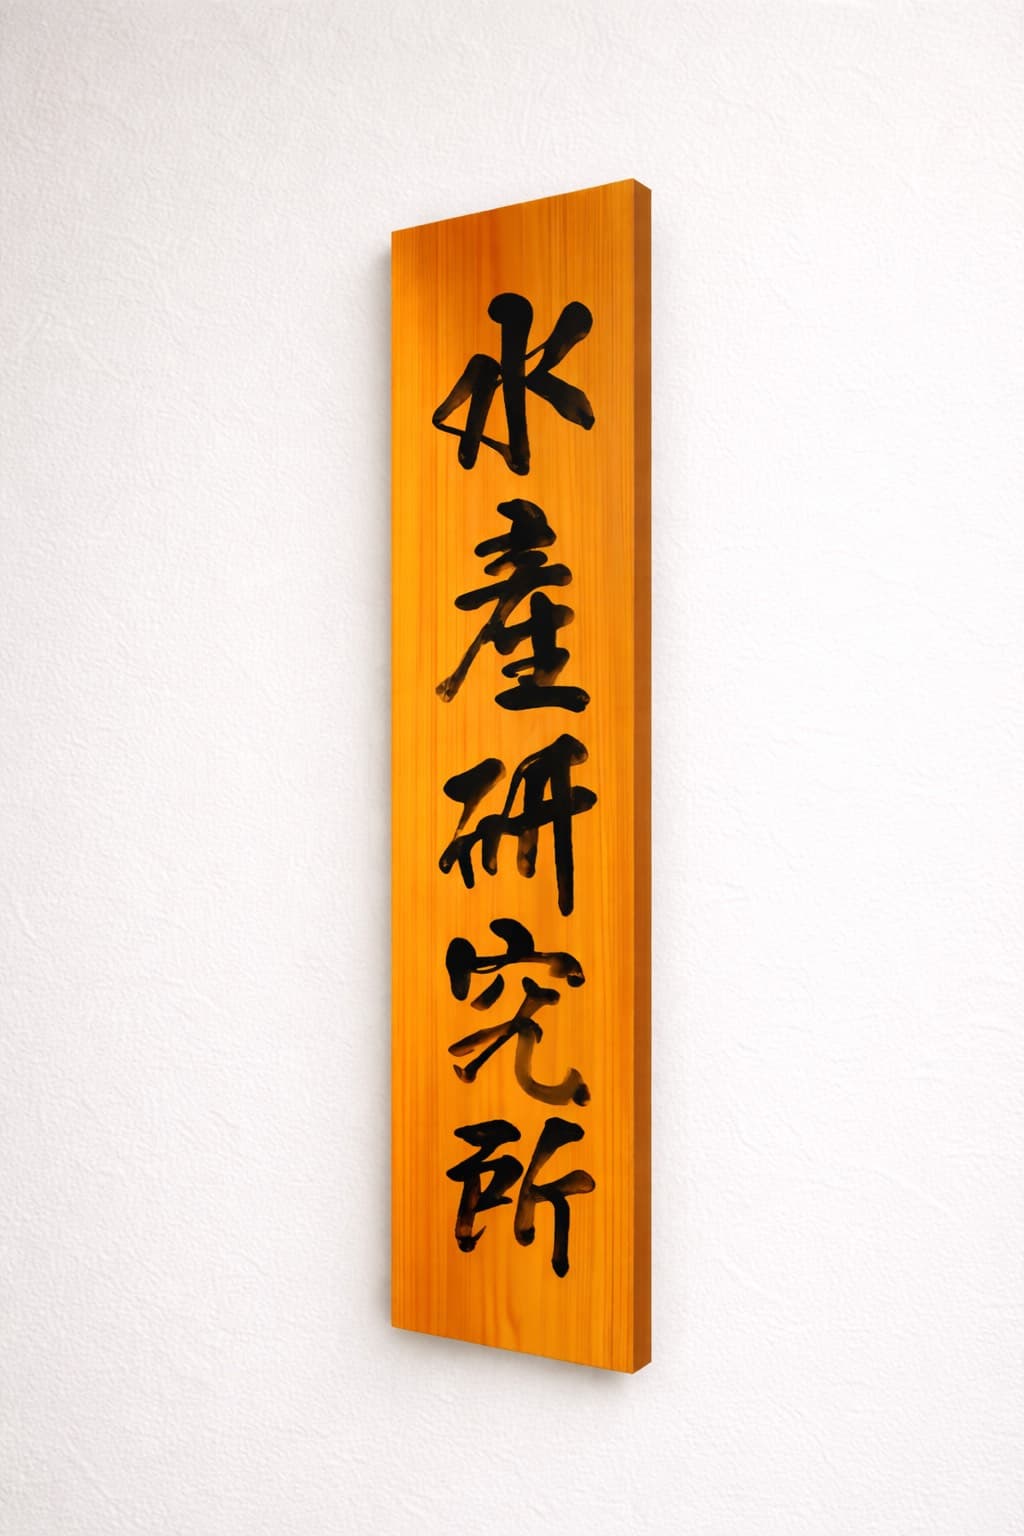 水産研究所